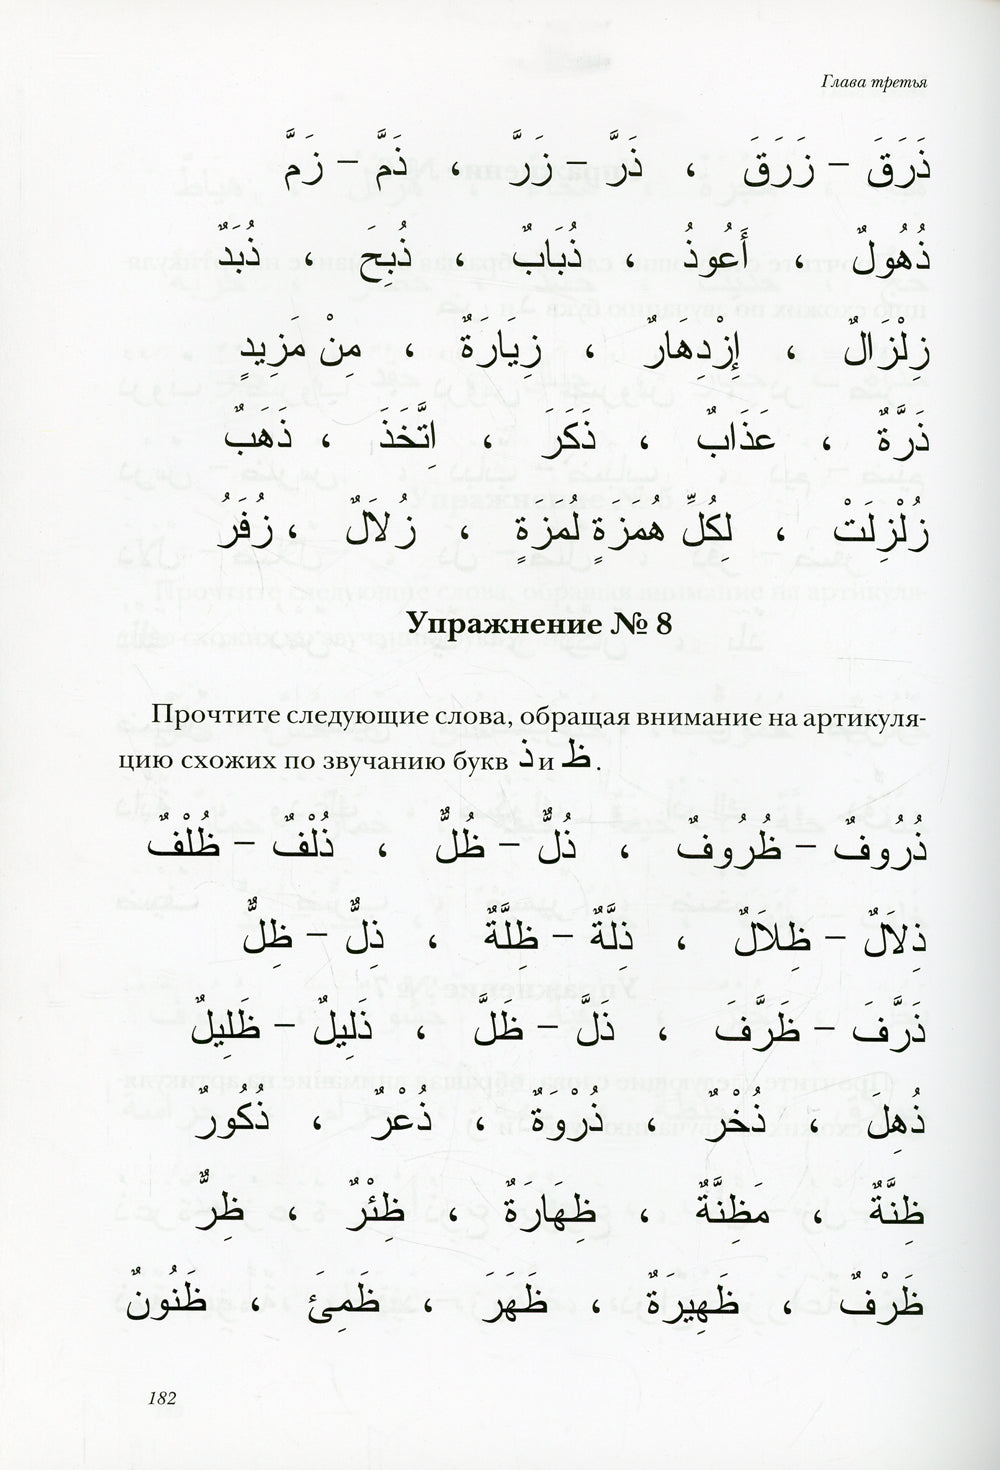 Глава третья
ذَرَقَ – زَرَقَ ، ذَرَّ – زَرَّ ، ذَمَّ – زَمَّ
ذُهُولٌ ، أَعُوذُ ، ذُبَابٌ ، ذُبِحَ ، ذُبَدٌ
زِلْزَالٌ ، إِزْدِهَارٌ ، زِيَارَةٌ ، مِنْ مَزِيدٍ
ذَرَّةٌ ، عَذَابٌ ، ذَكَرَ ، اِتَّخَذَ ، ذَهَبٌ
زُلْزِلَتْ ، لِكُلِّ هُمَزَةٍ لُمَزَةٍ ، زُلَالٌ ، زُفَرُ
Упражнение № 8
Прочтите следующие слова, обращая внимание на артикуля-
цию схожих по звучанию букв ذ и ظ .
ذُرُوفٌ – ظُرُوفٌ ، ذُلٌّ – ظُلٌّ ، ذُلْفٌ – ظُلْفٌ
ذِلَالٌ – ظِلَالٌ ، ذِلَّةٌ – ظِلَّةٌ ، ذِلٌّ – ظِلٌّ
ذَرَّفَ – ظَرَّفَ ، ذَلَّ – ظَلَّ ، ذَلِيلٌ – ظَلِيلٌ
ذُهِلَ ، ذُخْرٌ ، ذُرْوَةٌ ، ذُعْرٌ ، ذُكُورٌ
ظِنَّةٌ ، مَظِنَّةٌ ، ظِهَارَةٌ ، ظِئْرٌ ، ظِرٌّ
ظَرْفٌ ، ظَهِيرَةٌ ، ظَهَرَ ، ظَمِئَ ، ظَنُونٌ
182